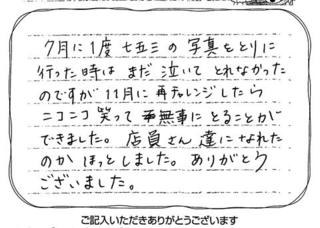 7月に1度 七五三の 写真をとりに
行った時は まだ 泣いて とれなかった
のですが 11月に 再チャレンジしたら
ニコニコ 笑って 無事に とることが
できました。 店員さん 達に なれた
のか ほっと しました。 ありがとう
ございました。
ご記入いただきありがとうございます